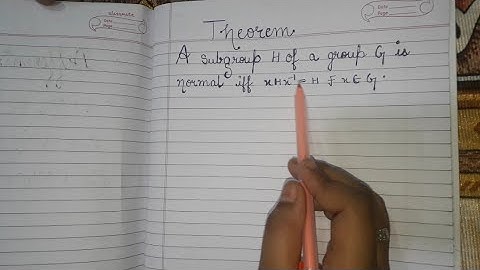 Theorem
A subgroup H of a group G is
normal iff xHx⁻¹ = H ∀ x ∈ G.